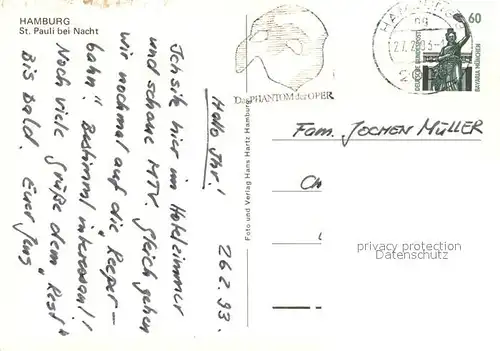 HAMBURG
St. Pauli bei Nacht
Hallo Ihr!
26.2.93.
Ich sitze hier im Hotelzimmer
und schaue MTV. Gleich gehen
wir nochmal auf die "Reeper-
bahn". Bestimmt interessant!
Noch viele Grüße dem "Rest"
BIS Bald. Euer Jung
Foto und Verlag Hans Hartz Hamburg
Das PHANTOM der OPER
HAMBURG
27.2.93
60
DEUTSCHE BUNDESPOST
BAVARIA MÜNCHEN
Fam. JOCHEN MÜLLER
privacy protection
Datenschutz